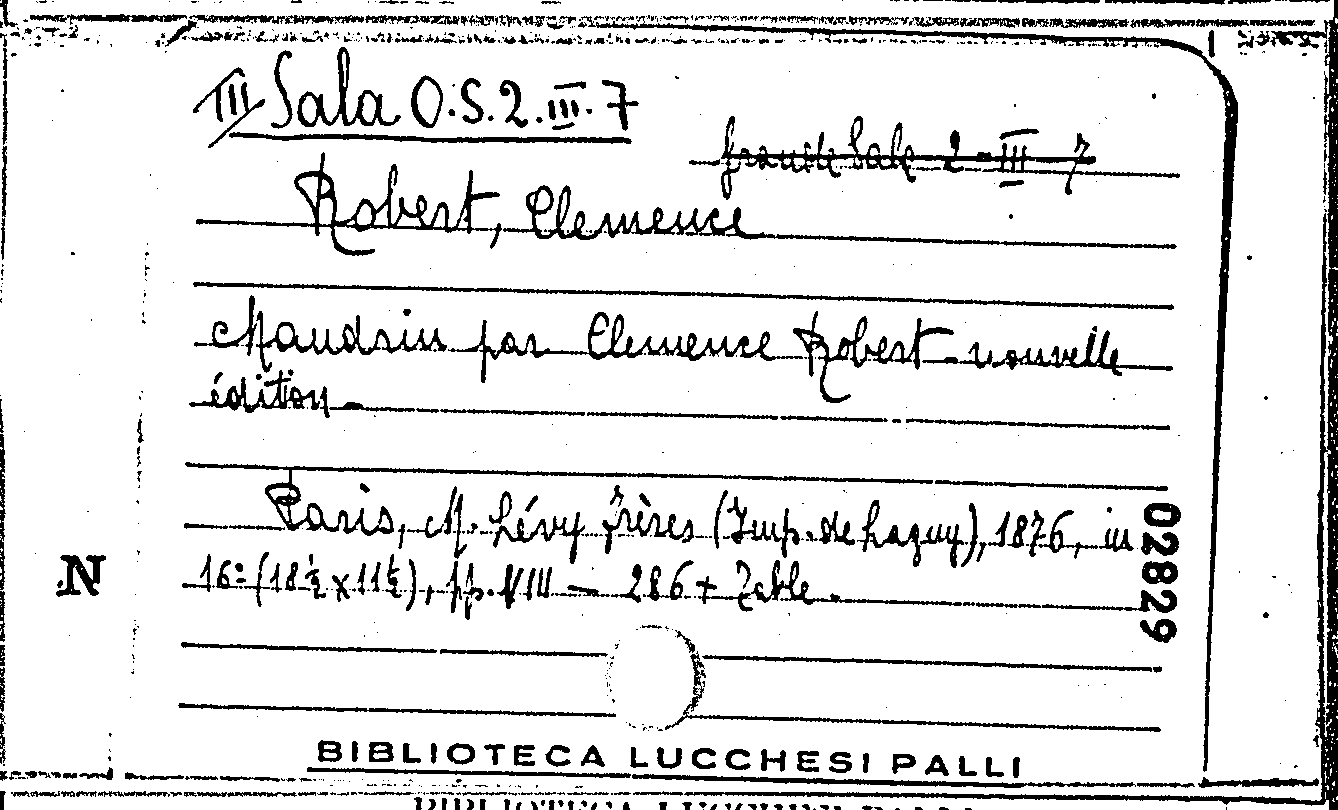 III Sala O.S.2.III.7
Grande Sala 2-III-7
Robert, Clemence
Mandrin par Clemence Robert - nouvelle
édition -
Paris, M. Lévy frères (Imp. de Lagny), 1876, in
16º (18½ x 11½), pp. VIII — 286 + Table.
N
02829
BIBLIOTECA LUCCHESI PALLI